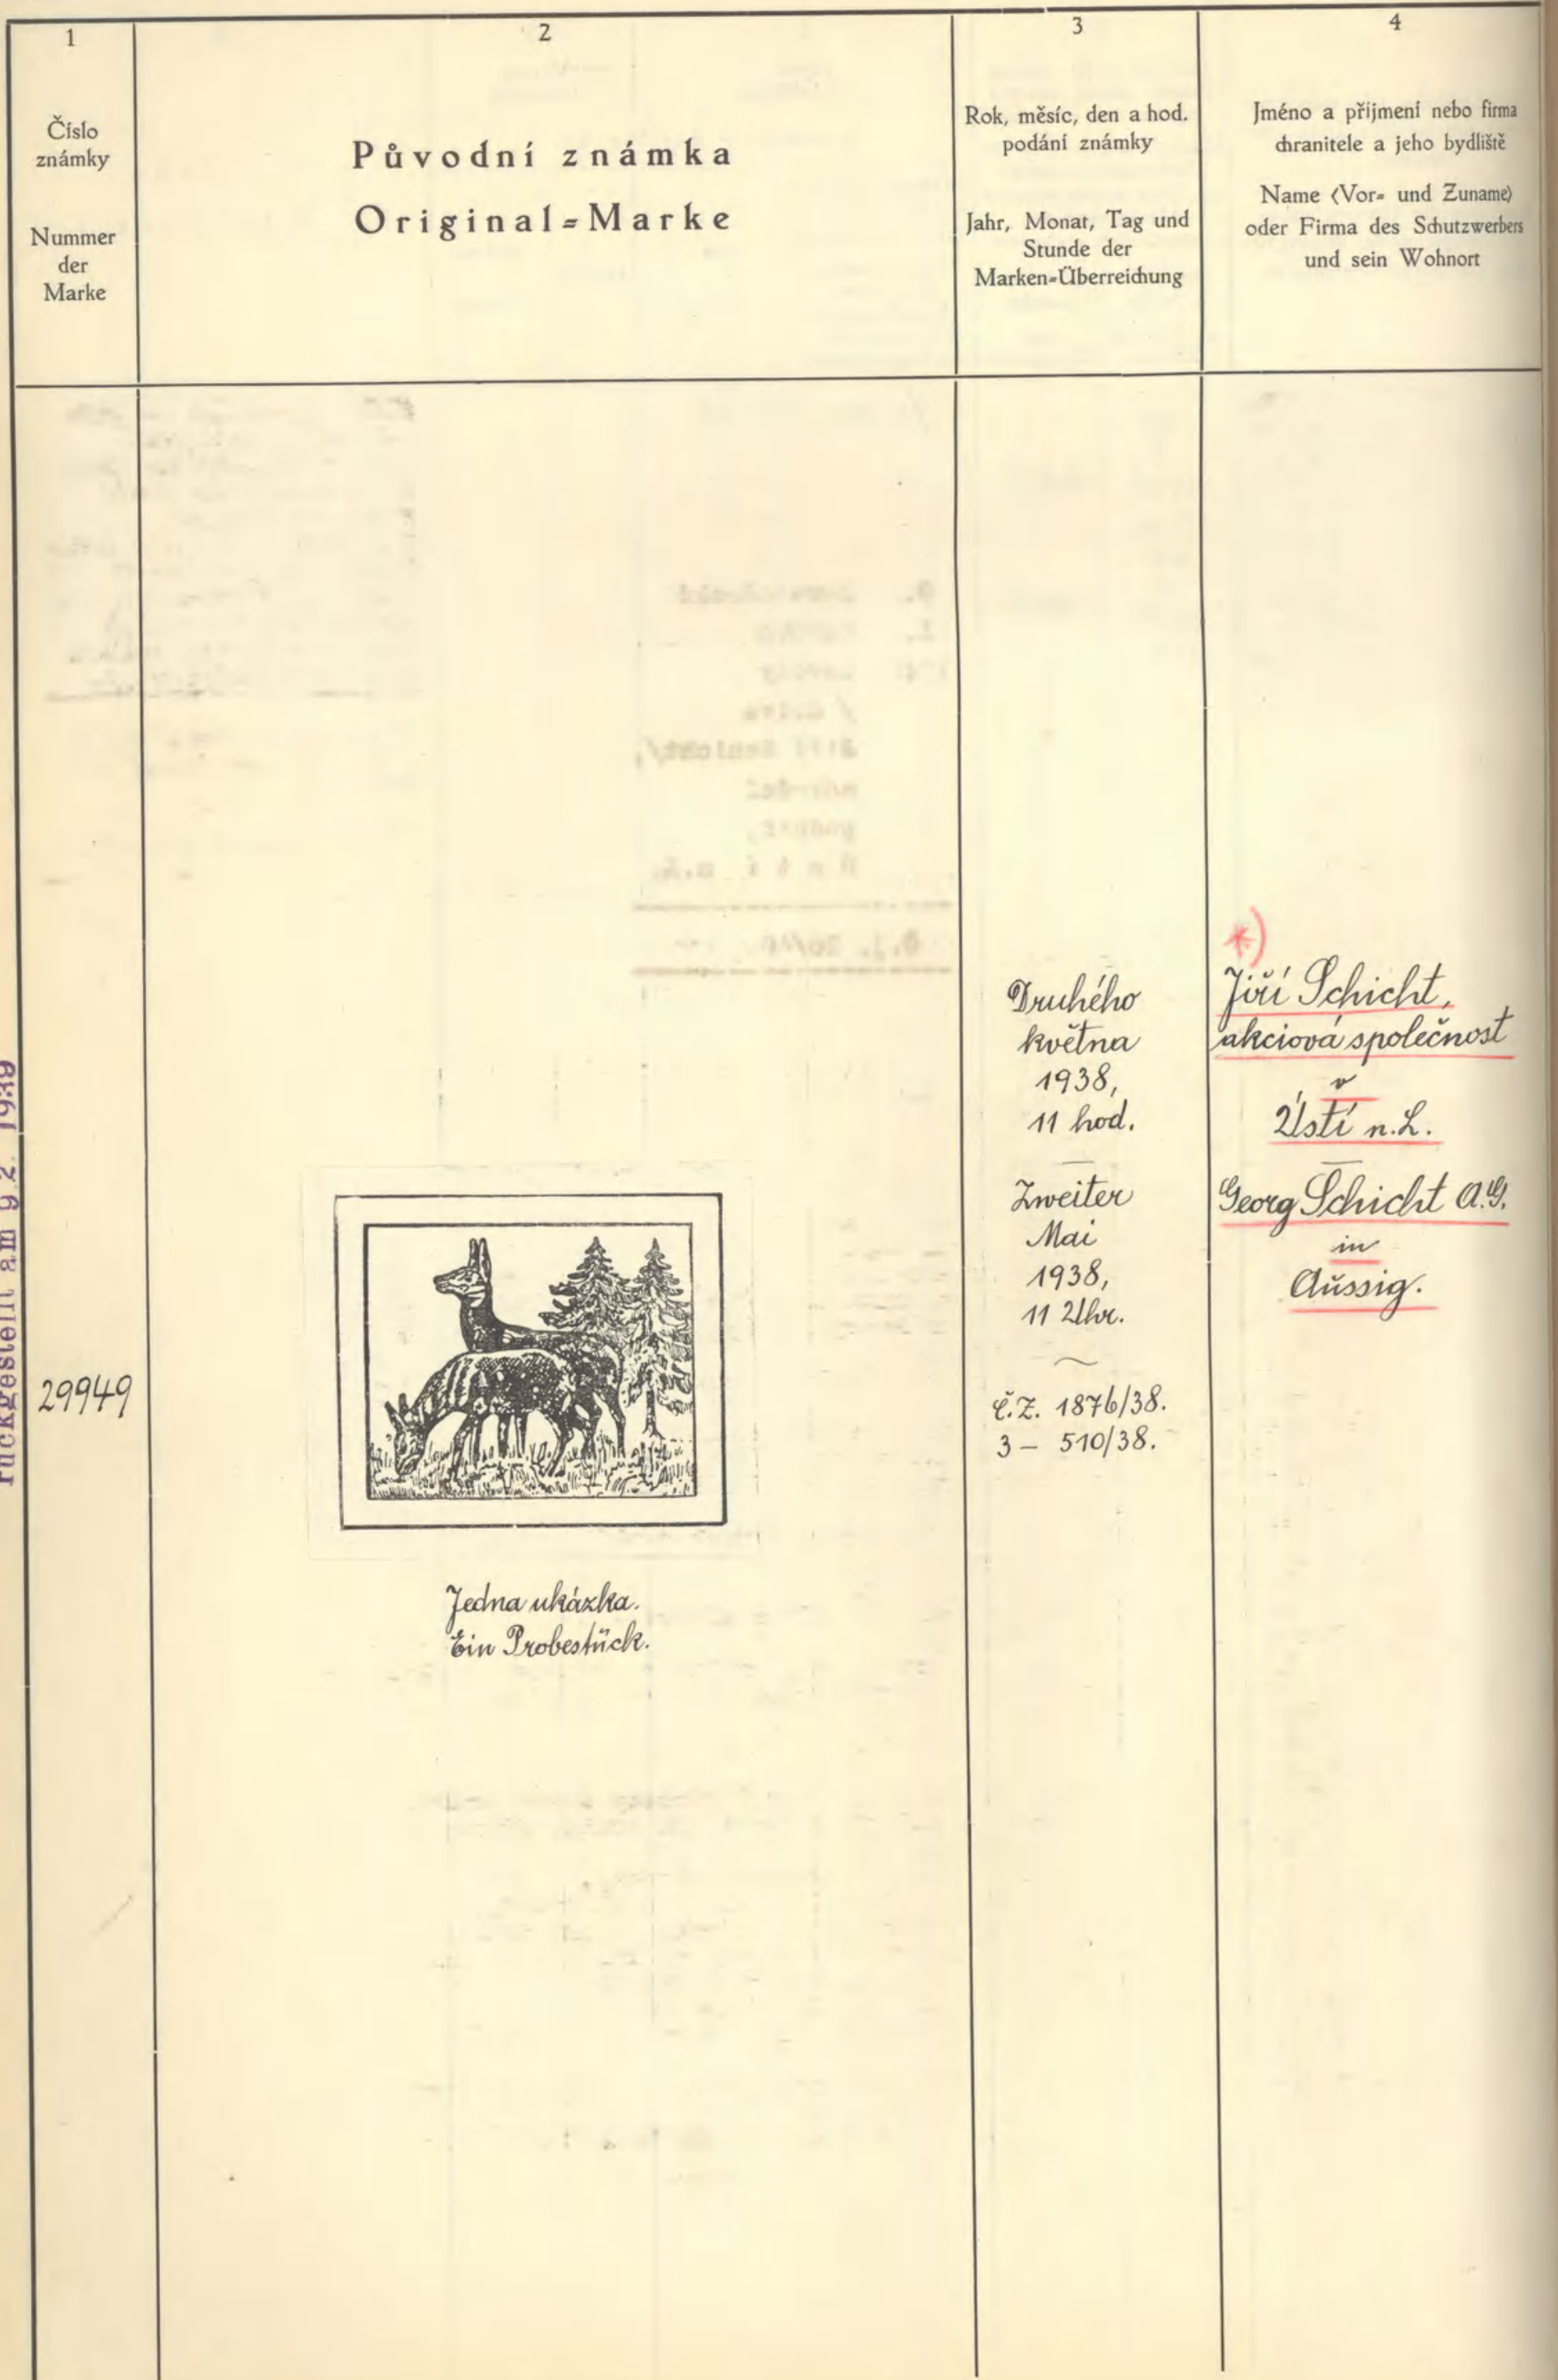 1
Číslo
známky
Nummer
der
Marke
2
Původní známka
Original=Marke
3
Rok, měsíc, den a hod.
podání známky
Jahr, Monat, Tag und
Stunde der
Marken=Überreichung
4
Jméno a příjmení nebo firma
chranitele a jeho bydliště
Name (Vor= und Zuname)
oder Firma des Schutzwerbers
und sein Wohnort
29949
Jedna ukázka.
Ein Probestück.
Druhého
května
1938,
11 hod.
Zweiter
Mai
1938,
11 Uhr.
č.Z. 1876/38.
3 – 510/38.
*)
Jiří Schicht,
akciová společnost
v
Ústí n.L.
Georg Schicht A.G.
in
Aussig.
rückgestellt am 9.2. 1939